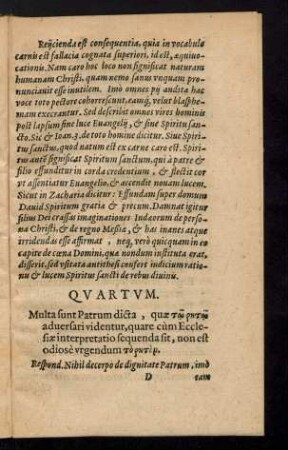 Reijcienda est consequentia, quia in vocabulo
carnis est fallacia cognata superiori, id est, æquiuo-
cationis. Nam caro hoc loco non significat naturam
humanam Christi, quam nemo sanus vnquam pro-
nunciauit esse inutilem. Imò omnes pij audita hac
voce toto pectore cohorrescunt, eamq́; velut blasphe-
mam execrantur. Sed describit omnes vires hominis
post lapsum sine luce Euangelij, & sine Spiritu san-
cto. Sic & Ioan. 3. de toto homine dicitur. Siue Spiri-
tus sanctus, quod natum est ex carne caro est. Spiri-
tus autē significat Spiritum sanctum, qui à patre &
filio effunditur in corda credentium, & flectit cor
vt assentiatur Euangelio, & accendit nouam lucem,
Sicut in Zacharia dicitur: Effundam super domum
Dauid Spiritum gratiæ & precum. Damnat igitur
filius Dei crassas imaginationes Iudæorum de perso-
na Christi, & de regno Messiæ, & has inanes atque
irridendas esse affirmat, neq́; verò quicquam in eo
capite de cœna Domini, qua nondum instituta erat,
disserit. sed vsitata antithesi confert iudicium ratio-
nis & lucem Spiritus sancti de rebus diuinis.
QVARTVM.
Multa sunt Patrum dicta, quæ τῷ ῥητῷ
aduersari videntur, quare cùm Eccle-
siæ interpretatio sequenda sit, non est
odiosè vrgendum τὸ ῥητὸν.
Respond. Nihil decerpo de dignitate Patrum, imò
D eam